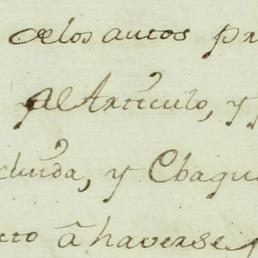 delos autos pr
al Artículo, y
cluida, y Chaqu
to â haverse